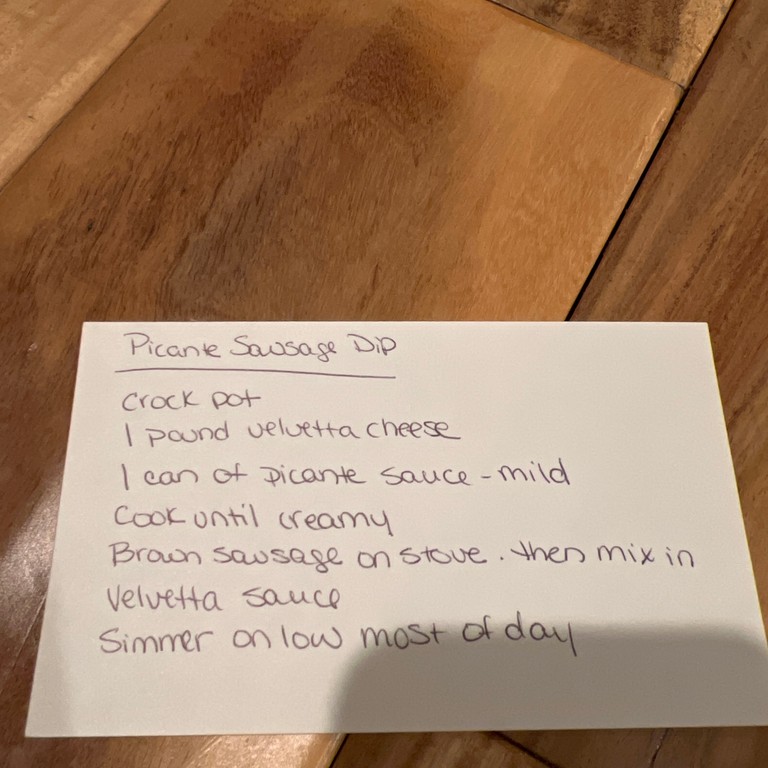 Picante Sausage Dip
Crock pot
1 pound velvetta cheese
1 can of picante sauce - mild
Cook until creamy
Brown sausage on stove. then mix in
Velvetta sauce
Simmer on low most of day